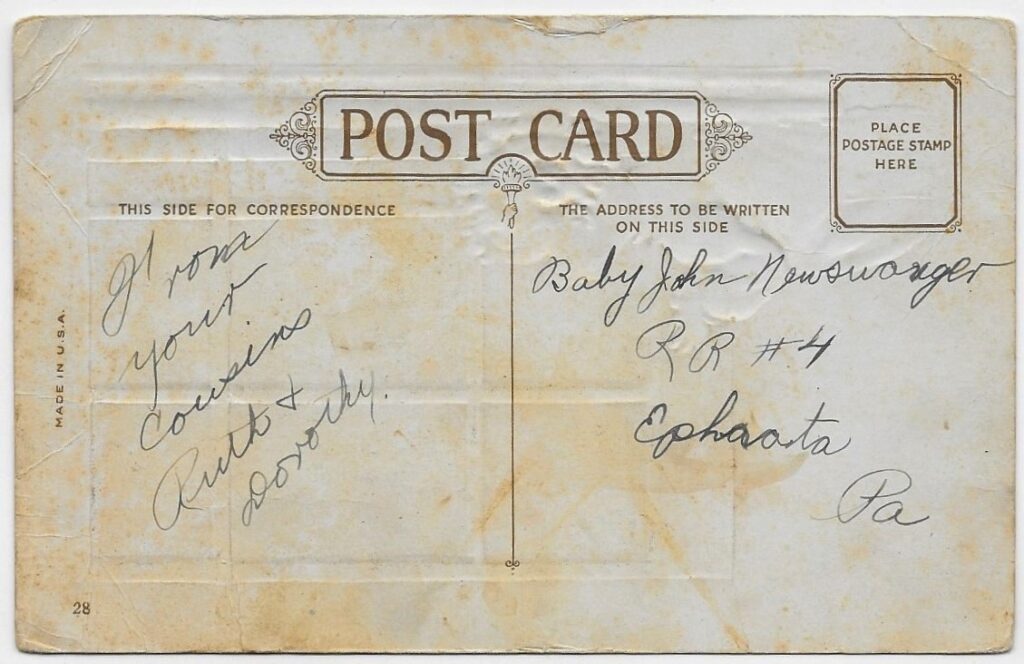 POST CARD
PLACE
POSTAGE STAMP
HERE
THIS SIDE FOR CORRESPONDENCE
THE ADDRESS TO BE WRITTEN
ON THIS SIDE
From
your
cousins
Ruth +
Dorothy.
Baby John Newswanger
RR #4
Ephrata
Pa
MADE IN U.S.A.
28